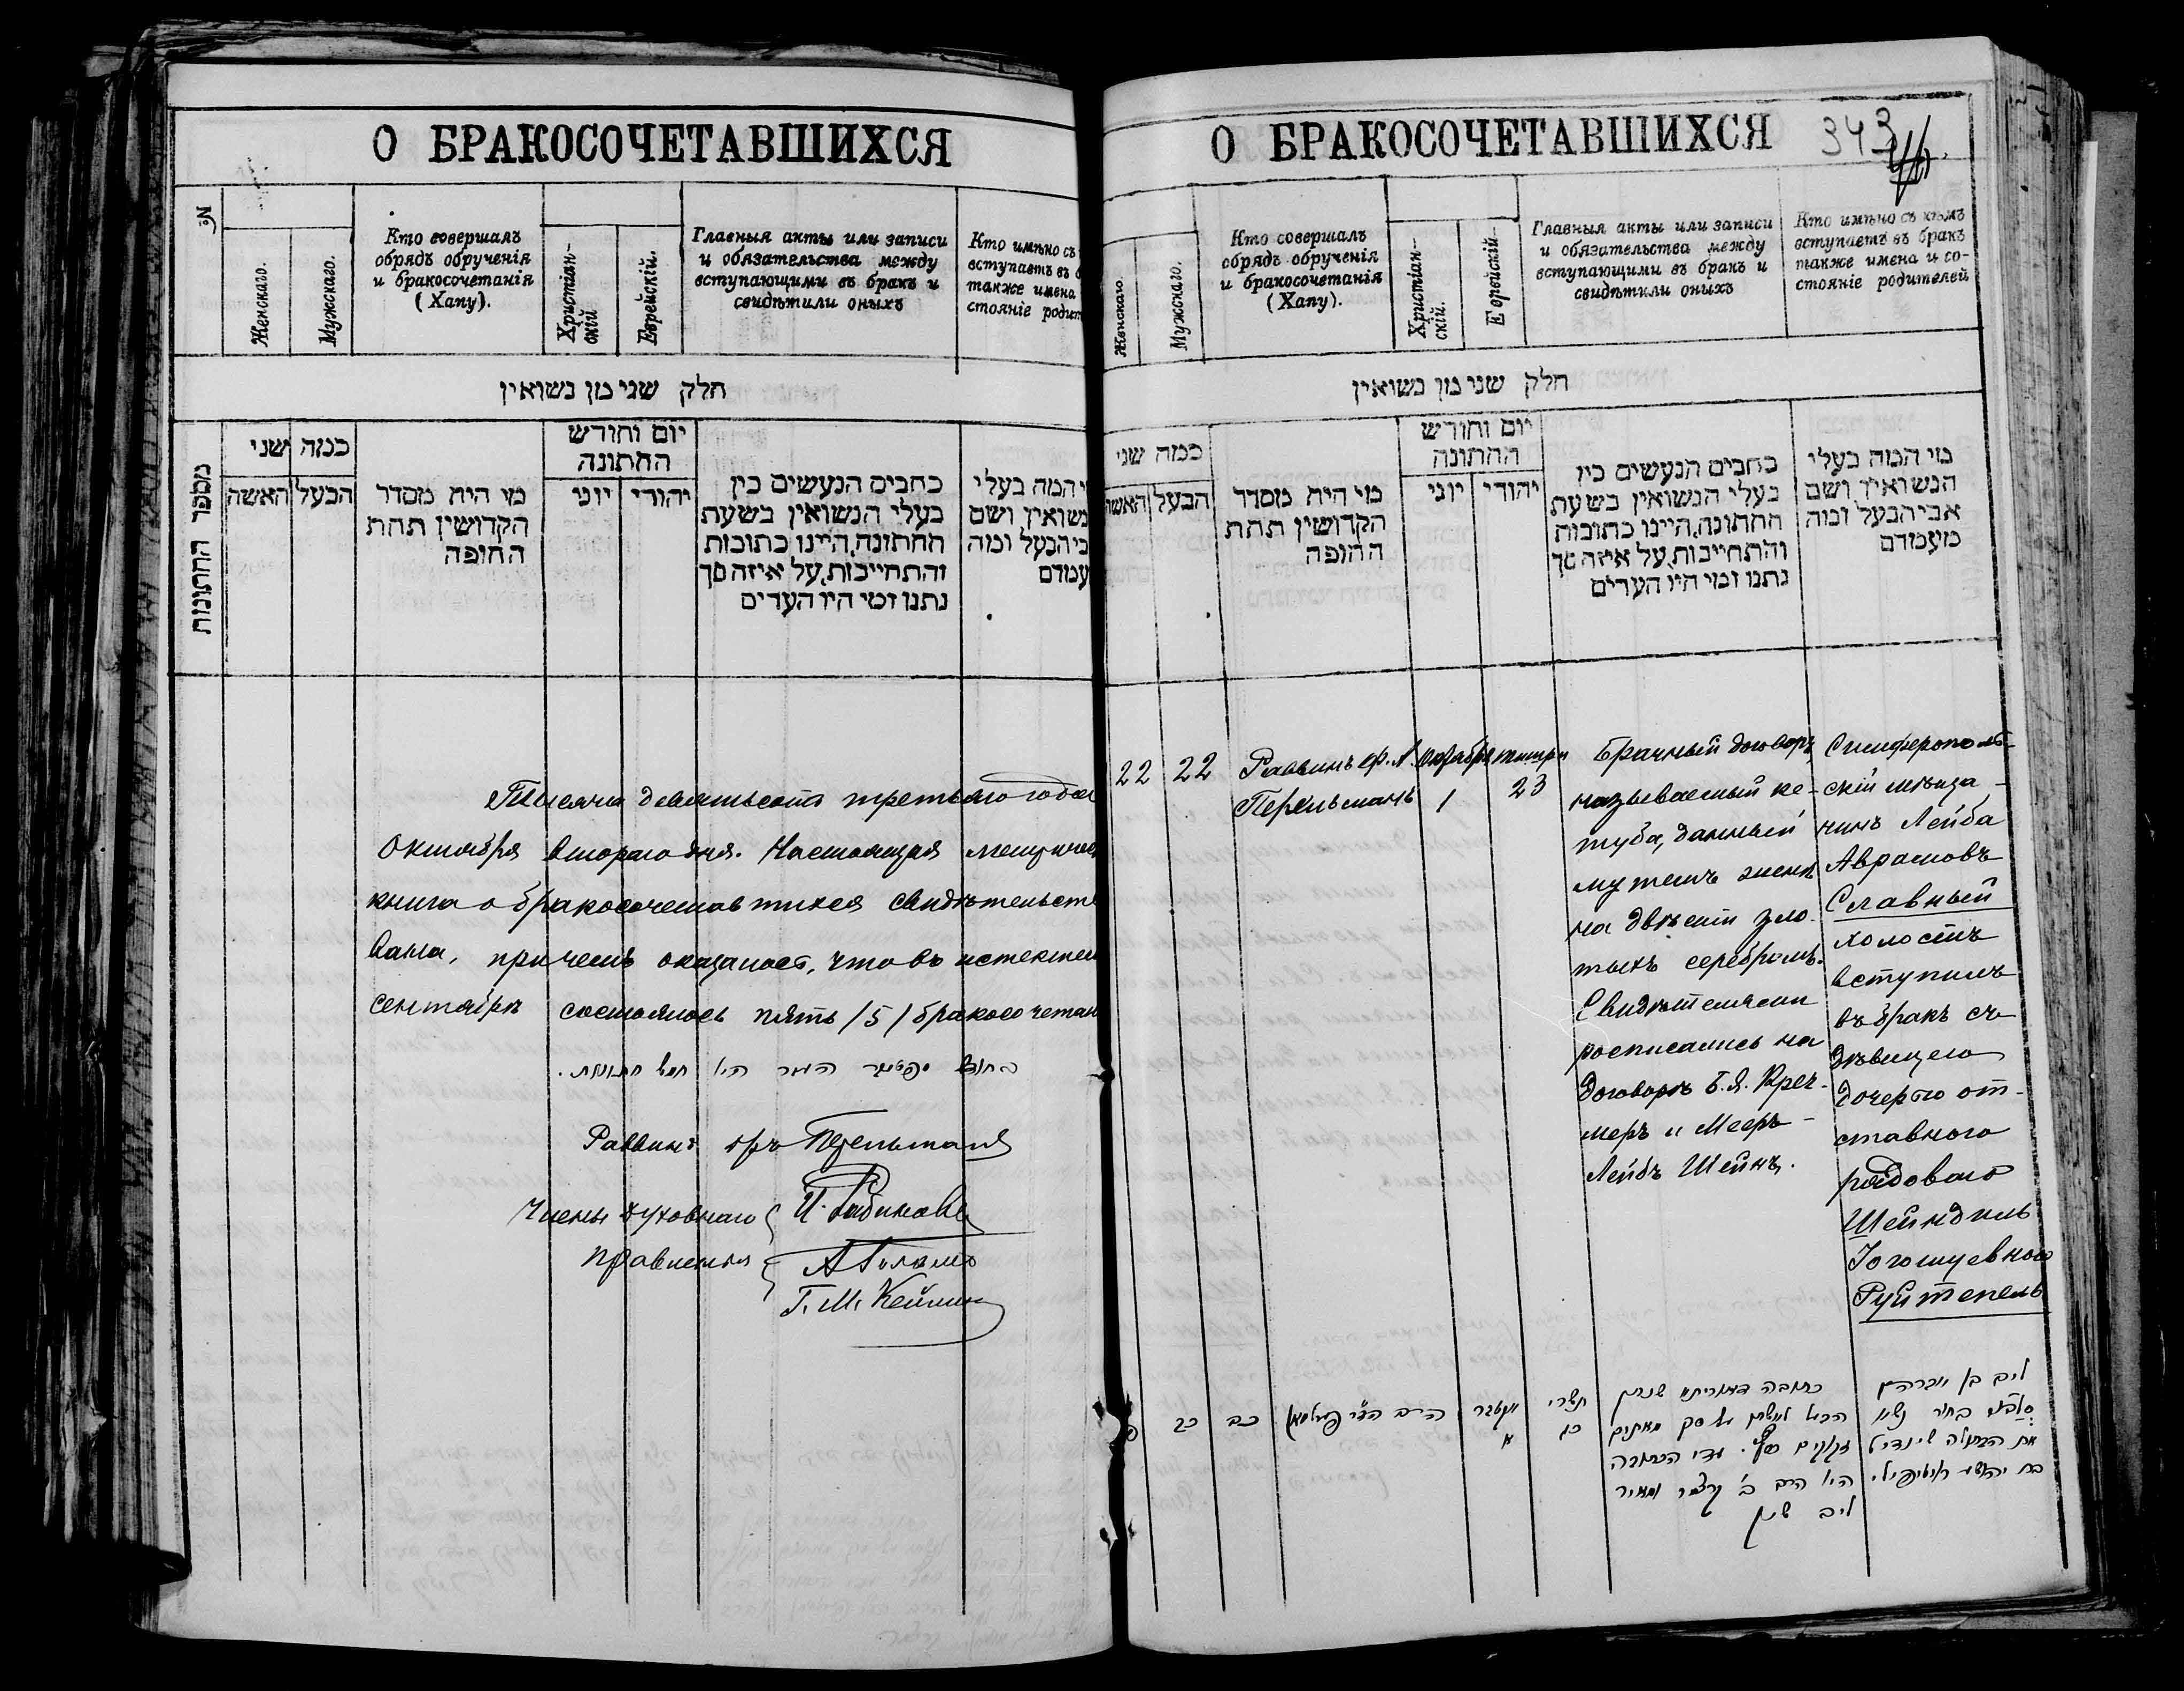 О БРАКОСОЧЕТАВШИХСЯ
№
Женскаго.
Мужскаго.
Кто совершалъ
обрядъ обрученія
и бракосочетанія
(Хапу).
Христіан-
скій
Еврейскій.
Главныя акты или записи
и обязательства между
вступающими въ бракъ и
свидѣтили оныхъ
Кто имѣно съ
вступаетъ въ б
также имена
стояніе родит
חלק שני מן נשואין
מספר החתונות
כמה שני
האשה
הבעל
מי היה מסדר
הקדושין תחת
החופה
יום וחודש
החתונה
יוני
יהודי
כתבים הנעשים בין
בעלי הנשואין בשעת
החתונה, היינו כתובות
והתחייבות, על איזה סך
נתנו ומי היו העדים
י המה בעלי
נשואין ושם
בי הבעל ומה
עמדם
Тысяча девятьсотъ третьяго года
Октября второго дня. Настоящая метричес
книга о бракосочетавшихся свидѣтельст
вана, причемъ оказалось, что въ истекшем
сентябрѣ состоялось пять /5/ бракосочетан
בחודש סעפטעמבר העבר היו חמש חתונות.
Раввинъ дръ Перельманъ
Члены духовнаго
правленія
Г. М. Кейлин
О БРАКОСОЧЕТАВШИХСЯ
343
Женскаго
Мужскаго.
Кто совершалъ
обрядъ обрученія
и бракосочетанія
(Хапу).
Христіан-
скій.
Еврейскій
Главныя акты или записи
и обязательства между
вступающими въ бракъ и
свидѣтили оныхъ
Кто имѣно съ кѣмъ
вступаетъ въ бракъ
также имена и со-
стояніе родителей
חלק שני מן נשואין
כמה שני
האשה
הבעל
מי היה מסדר
הקדושין תחת
החופה
יום וחודש
החתונה
יוני
יהודי
כתבים הנעשים בין
בעלי הנשואין בשעת
החתונה, היינו כתובות
והתחייבות, על איזה סך
נתנו ומי היו העדים
מי המה בעלי
הנשואין ושם
אבי הבעל ומה
מעמדם
22
22
Раввинъ др. А.
Перельманъ
Октября
1
тишри
23
Брачный договоръ,
называемый ке-
туба, данный
мужемъ женѣ
на двѣсти зло-
тыхъ серебромъ.
Свидѣтелями
росписались на
договорѣ Б. Я. Креч-
меръ и Мееръ-
Лейбъ Шейнъ.
Симферополь-
скій мѣща-
нинъ Лейба
Авраамовъ
Славный
холостъ
вступилъ
въ бракъ съ
дѣвицею
дочерью от-
ставного
рядового
Шейндиль
Іогошуевною
Руйтепель
כב
כב
הרב הד״ר פערלמאן
אקטאבר
א
תשרי
כג
כתובה דאוריתא שנתן
הבעל לאשתו על סך מאתים
זהובים כסף. עדי הכתובה
היו הרב ב׳ קרצמר ומאיר
ליב שיין
ליב בן אברהם
סלבני בחור נשא
את הבתולה שינדיל
בת יהושע